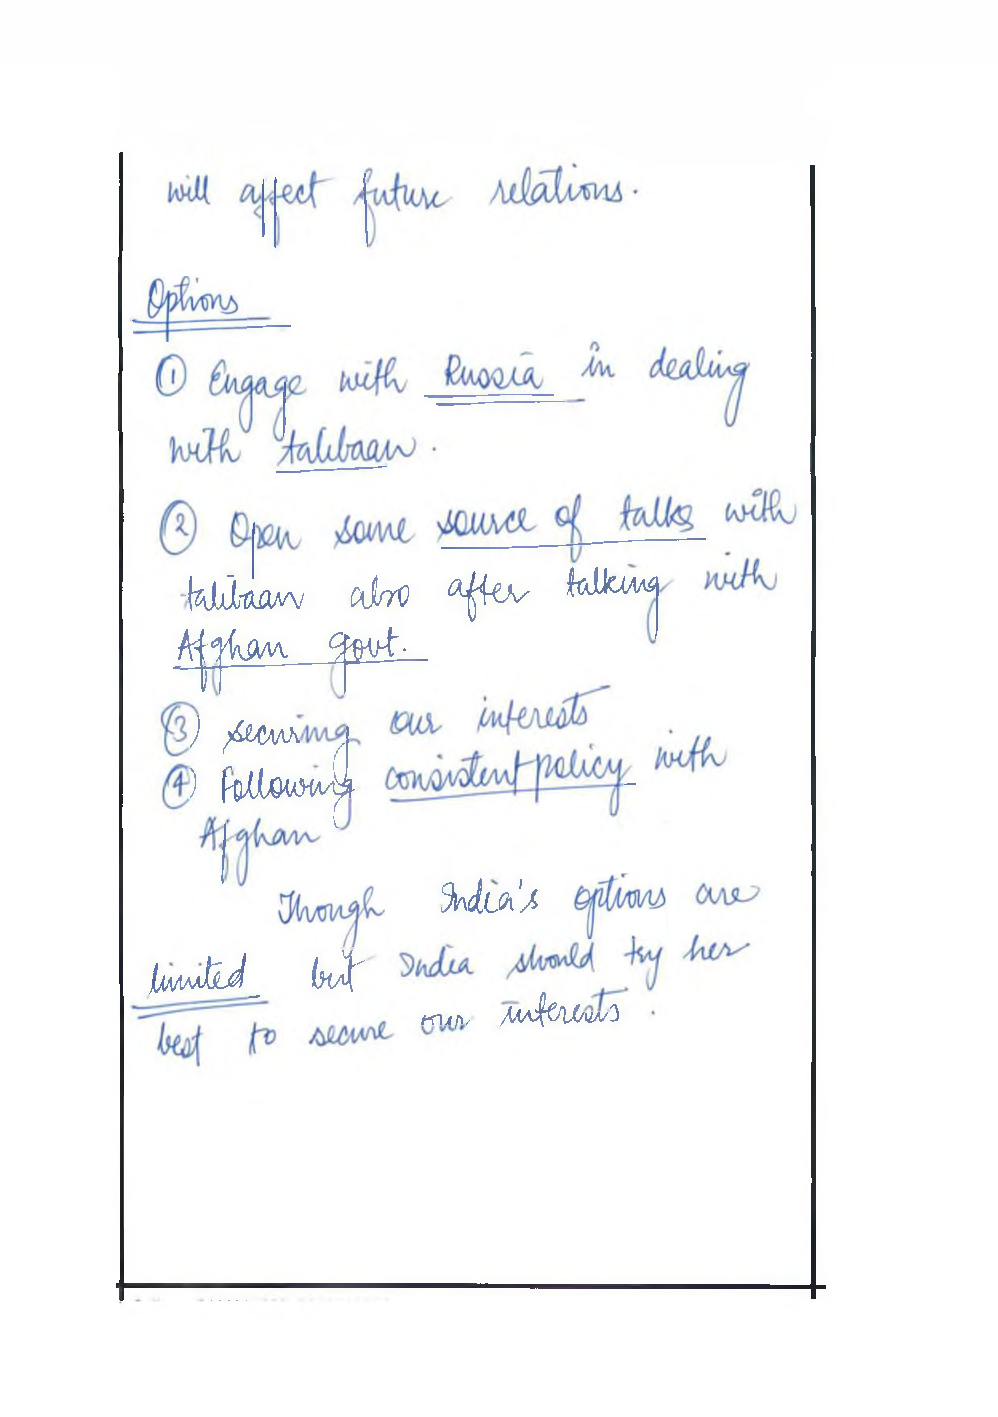 will affect future relations.
Options
① Engage with Russia in dealing
with talibaan.
② Open some source of talks with
talibaan also after talking with
Afghan govt.
③ securing our interests
④ Following consistent policy with
Afghan
Though India's options are
limited but India should try her
best to secure our interests.